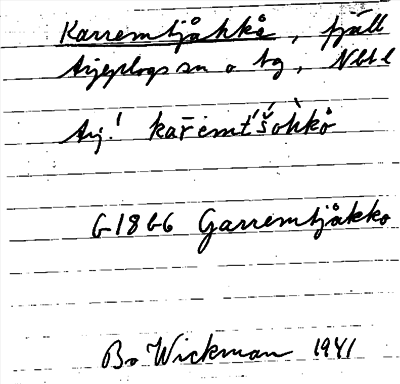 Karremtjåkkå, fjäll
Arjeplogs sn o tg, Nbt l
Arj.! kařėmt́š́òhkå
G1866 Garremtjåkko
Bo Wickman 1941